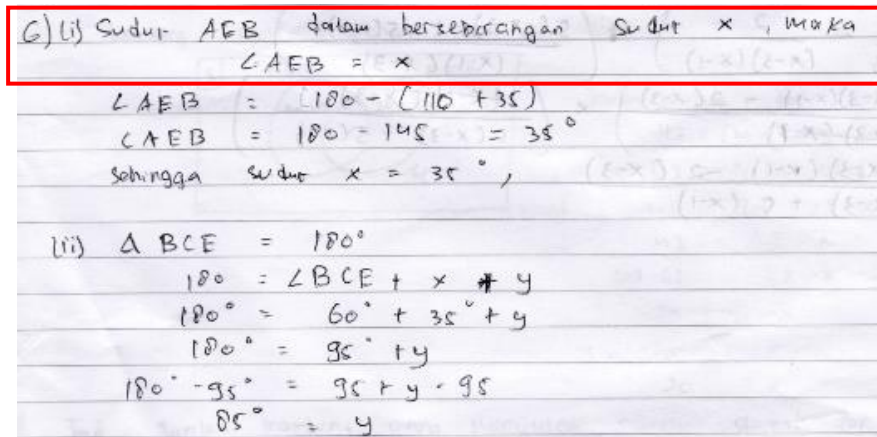 6) (i) Sudur AEB dalam berseberangan Sudut x, maka
∠AEB = x
∠AEB = (180 - (110 + 35)
∠AEB = 180 - 145 = 35°
sehingga sudut x = 35°,
(ii) Δ BCE = 180°
180 = ∠BCE + x + y
180° = 60° + 35° + y
180° = 95° + y
180° - 95° = 95 + y - 95
85° = y